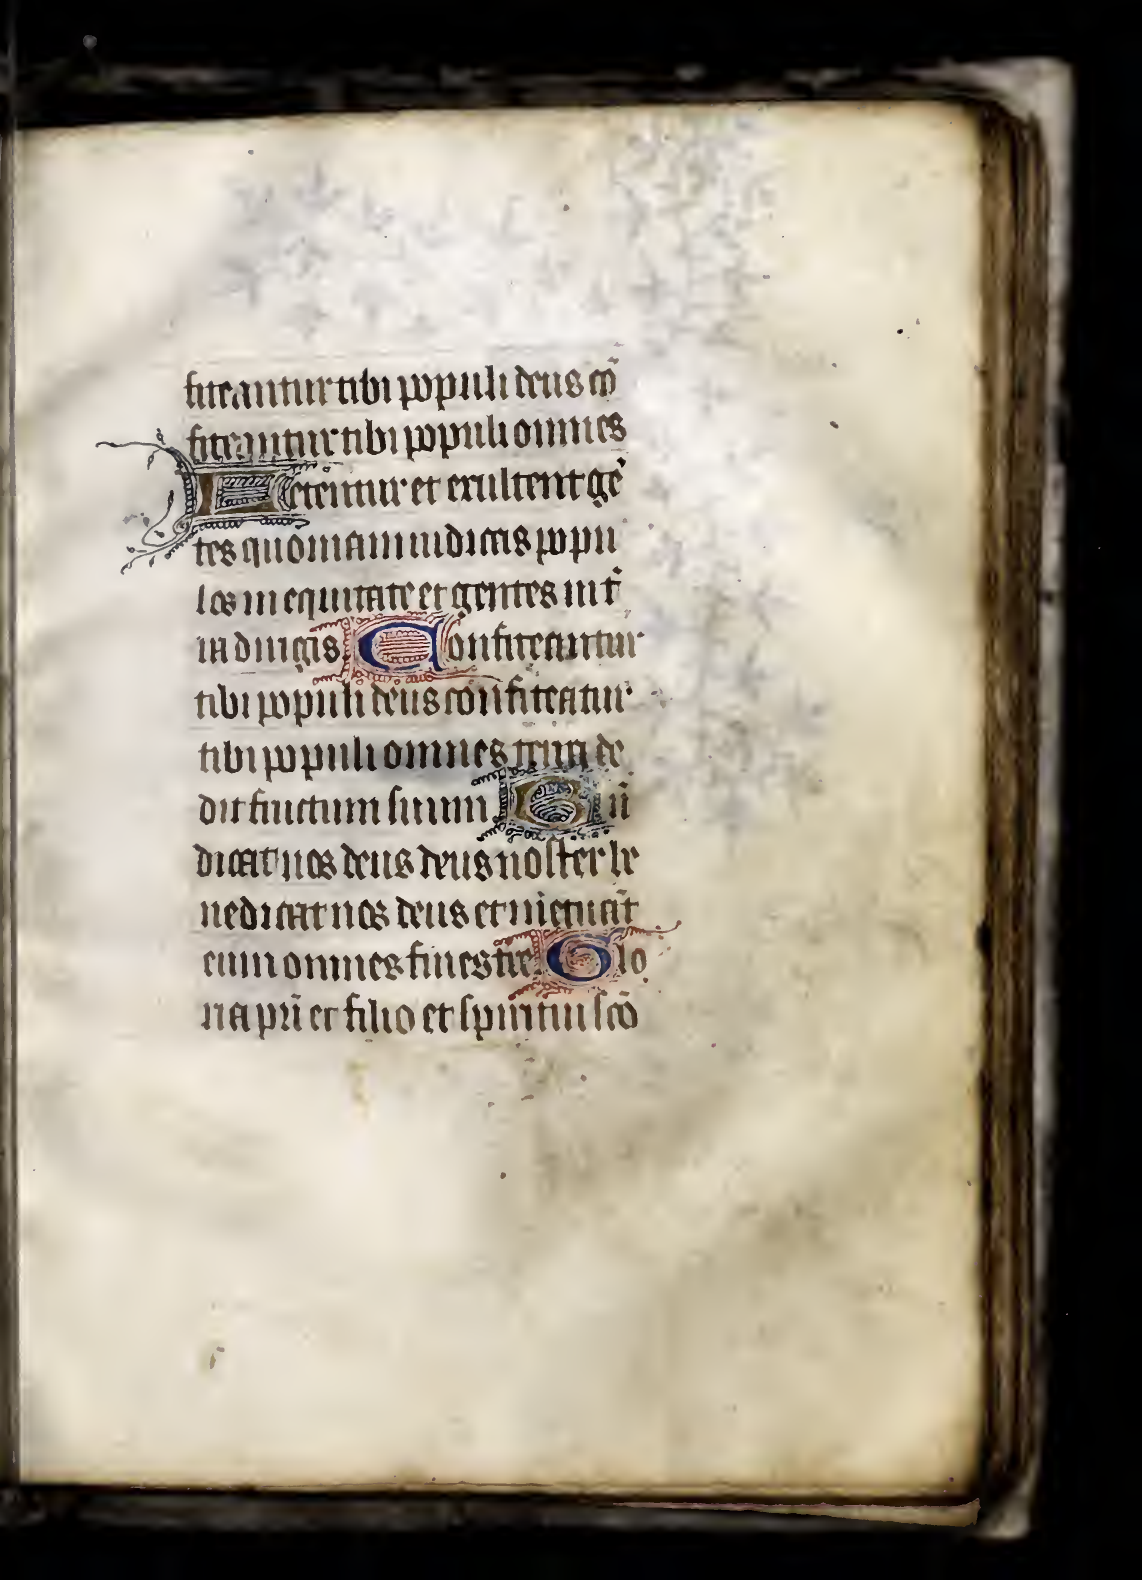 fiteantur tibi populi deus cō
fiteantur tibi populi omnes
Letentur et exultent gē
tes quoniam iudicas popu
los in equitate et gentes in t̄
ra dirigis. Confiteantur
tibi populi deus confiteatur
tibi populi omnes terra de
dit fructum suum Bn̄
dicat nos deus deus noster be
nedicat nos deus et metuāt
eum omnes fines tr̄e. Glo
ria pr̄i et filio et spiritui sc̄o